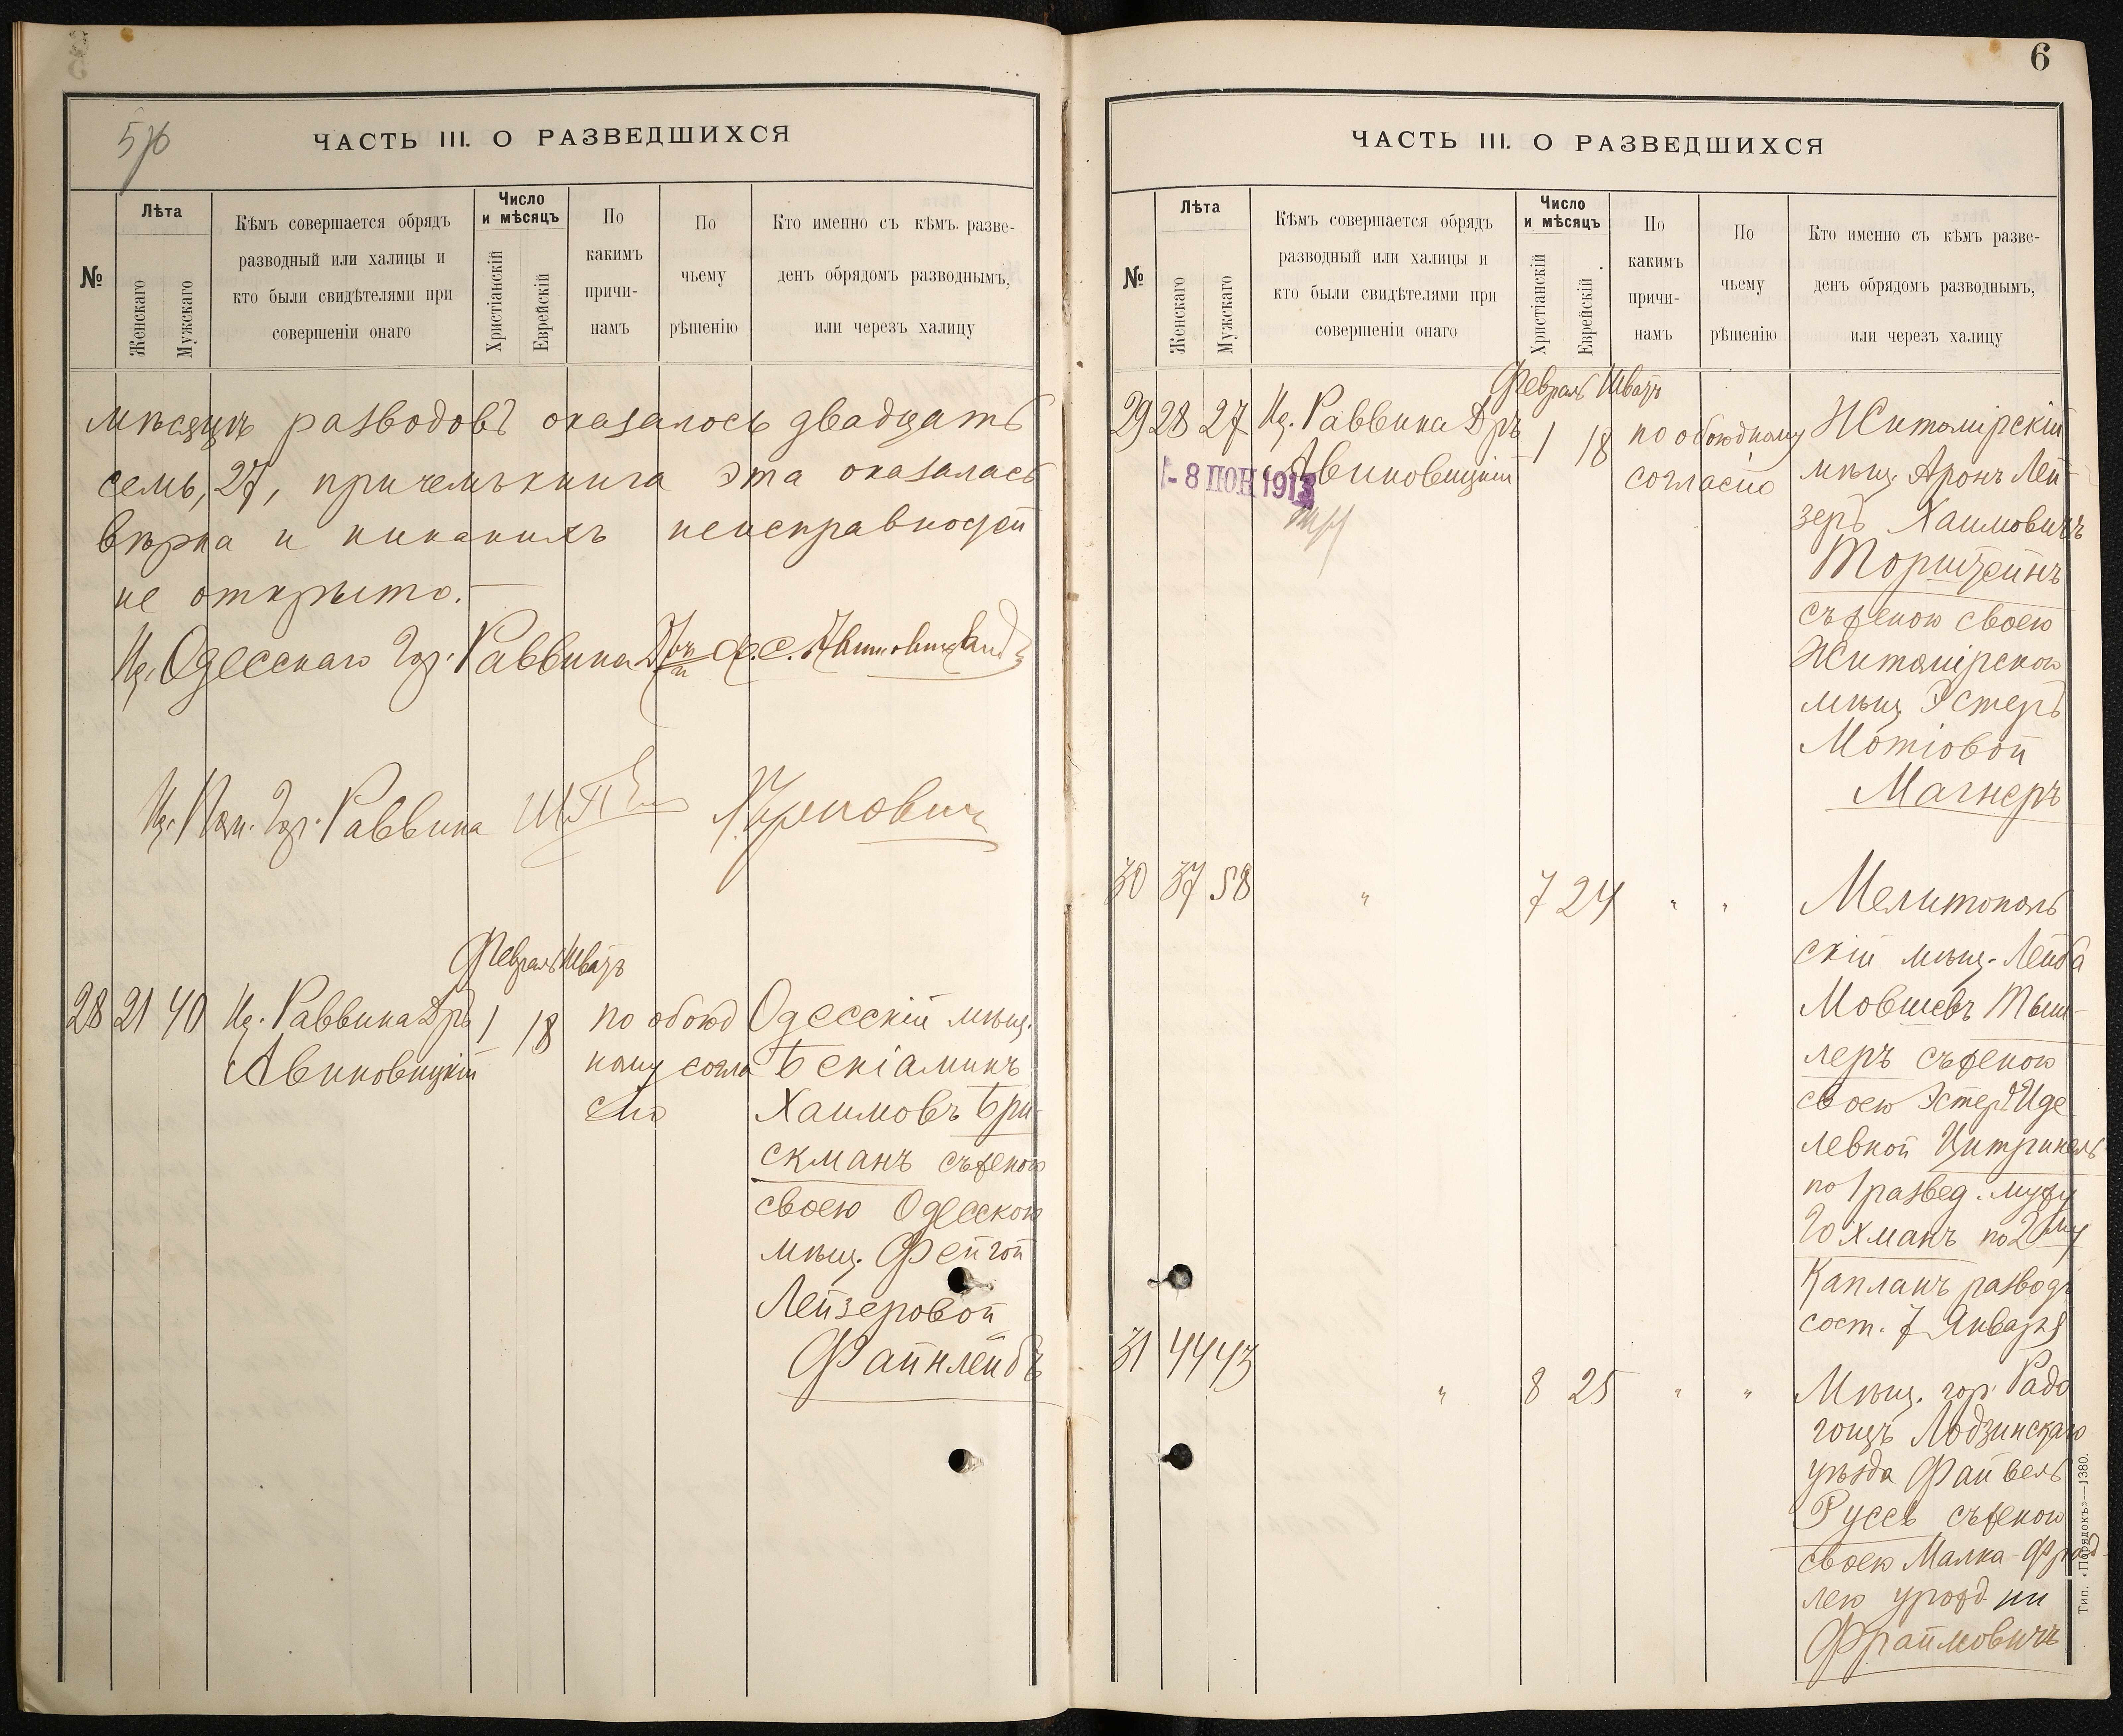 5/6
ЧАСТЬ III. О РАЗВЕДШИХСЯ
№
Лѣта
Женскаго
Мужскаго
Кѣмъ совершается обрядъ
разводный или халицы и
кто были свидѣтелями при
совершеніи онаго
Число
и мѣсяцъ
Христіанскій
Еврейскій
По
какимъ
причи-
намъ
По
чьему
рѣшенію
Кто именно съ кѣмъ разве-
денъ обрядомъ разводнымъ,
или черезъ халицу
мѣсяцѣ разводовъ оказалось двадцать
семь, 27, причемъ книга эта оказалась
вѣрна и никакихъ неисправностей
не открыто.
Ид. Одесскаго Гор. Раввина
Гор. Раввина
Февраль Шватъ
28 21 40 Ид. Раввина Дръ 1 18 по обоюд Одесскій мѣщ.
Авиновицкій ному согла Беніаминъ
сію Хаимовъ Бри-
скманъ съ женою
своею Одесскою
мѣщ. Фейгой
Лейзеровой
Файнлейбъ
6
ЧАСТЬ III. О РАЗВЕДШИХСЯ
№
Лѣта
Женскаго
Мужскаго
Кѣмъ совершается обрядъ
разводный или халицы и
кто были свидѣтелями при
совершеніи онаго
Число
и мѣсяцъ
Христіанскій
Еврейскій
По
какимъ
причи-
намъ
По
чьему
рѣшенію
Кто именно съ кѣмъ разве-
денъ обрядомъ разводнымъ,
или черезъ халицу
Февраль Шватъ
29 28 27 Ид. Раввина Дръ 1 18 по обоюдному Житомірскій
Авиновицкій согласію мѣщ. Аронъ Лей
- 8 ІЮН 1913
зеръ Хаимовичъ
Торштейнъ
съ женою своею
Житомірскою
мѣщ. Эстеръ
Мотіовой
Магнеръ
30 37 58 " 7 24 " " Мелитополь
скій мѣщ. Лейба
Мовшевъ Тыш-
леръ съ женою
своею Эстеръ Иде
левной Цитринель
по 1 развед. мужу
Гохманъ по 2му
Капланъ разводъ
сост. 7 Января
31 44 43 " 8 25 " " Мѣщ. гор. Радо
гощъ Лодзинскаго
уѣзда Файвель
Руссъ съ женою
своею Малка-Фрад
лею урожд.
Фраймовичъ
Тип. «Порядокъ»—1380.